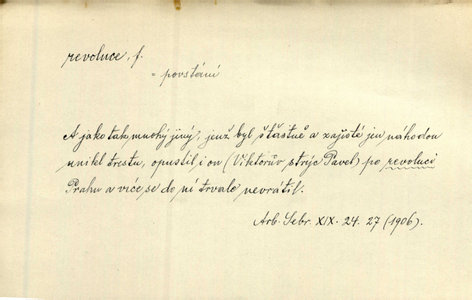 revoluce, f.
= povstání
A jako tak mnohý jiný, jenž byl šťastně a zajisté jen náhodou
unikl trestu, opustil i on (Viktorův strýc Pavel) po revoluci
Prahu a více se do ní trvale nevrátil.
Arb. Sebr. XIX. 24. 27 (1906).